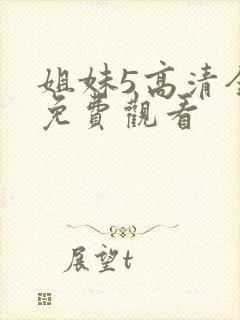 姐妹5高清
免費觀看
展望t